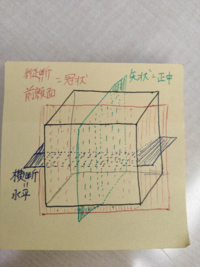 縦断
=冠状
前額面
矢状=正中
横断
=
水平